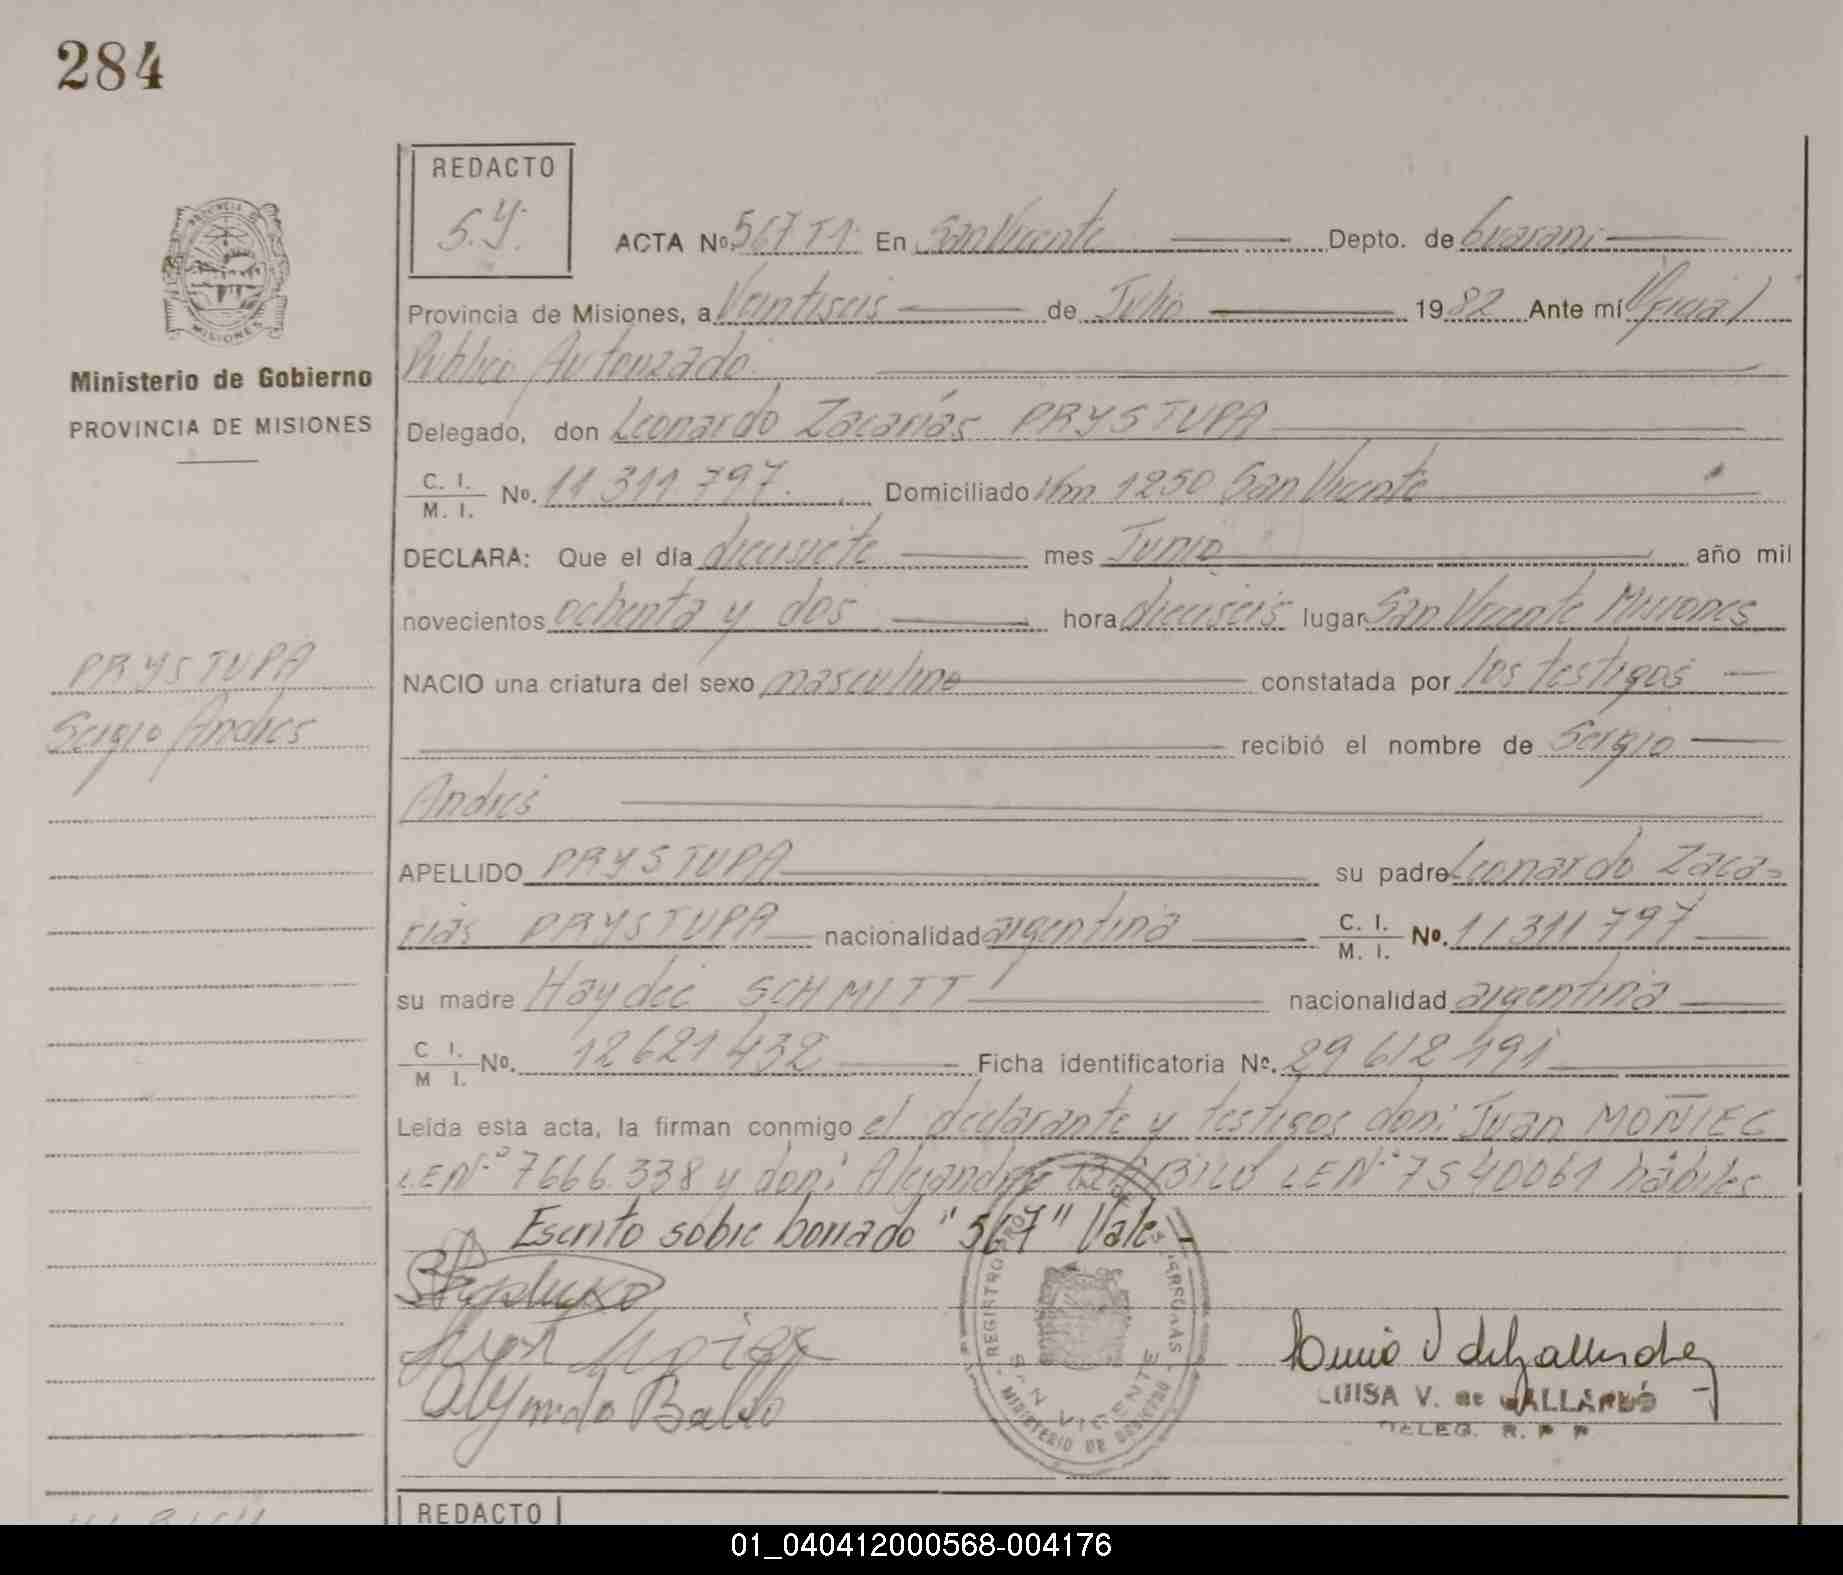 284
REDACTO
S.Y.
PROVINCIA DE
MISIONES
Ministerio de Gobierno
PROVINCIA DE MISIONES
ACTA No. 567 T1 En San Vicente Depto. de Guarani
Provincia de Misiones, a Veintiseis de Julio 1982 Ante mí Oficial
Publico Autorizado
Delegado, don Leonardo Zacarías PRYSTUPA
C. I. / M. I. No. 11 311 797. Domiciliado Km 1250 San Vicente
DECLARA: Que el día diecisiete mes Junio año mil
novecientos ochenta y dos hora dieciseis lugar San Vicente Misiones
PRYSTUPA
Sergio Andres
NACIO una criatura del sexo masculino constatada por los testigos
recibió el nombre de Sergio
Andrés
APELLIDO PRYSTUPA su padre Leonardo Zaca-
rías PRYSTUPA nacionalidad argentina C. I. / M. I. No. 11311797
su madre Haydeé SCHMITT nacionalidad argentina
C I. / M I. No. 12621432 Ficha identificatoria No. 29612491
Leída esta acta, la firman conmigo el declarante y testigos don: Juan MOÑIEC
LEN.º 7666.338 y don: LEN.º 7540061 hábiles
Escrito sobre borrado "567" Vale.-
REGISTRO
SAN VICENTE
MINISTERIO DE GOBIERNO
LUISA V. de GALLARDO
DELEG. R. P P
REDACTO
01_040412000568-004176